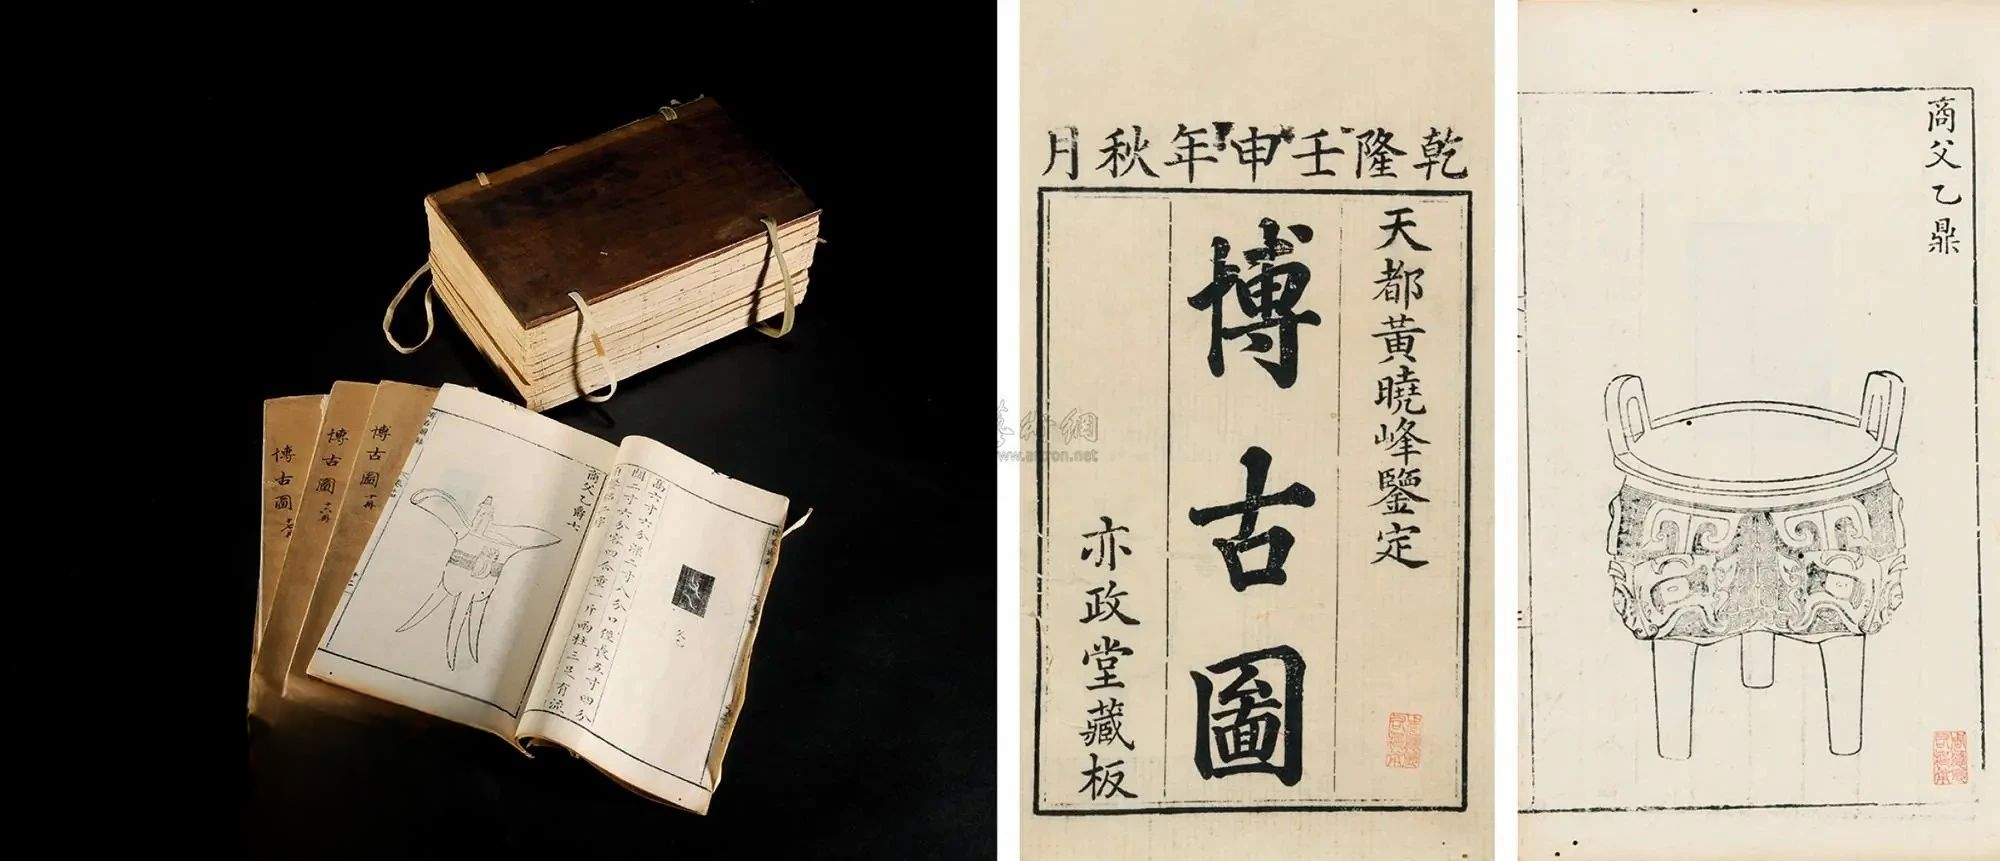 博古圖
博古圖
十六冊
博古圖
十冊
商父乙爵
高六寸六分深二寸八分口徑長五寸四分
闊二寸六分容四合重一斤兩柱三足有流
父乙
乾隆壬申年秋月
天都黃曉峰鑒定
博古圖
亦政堂藏板
商父乙鼎
藝術網
www.artron.net